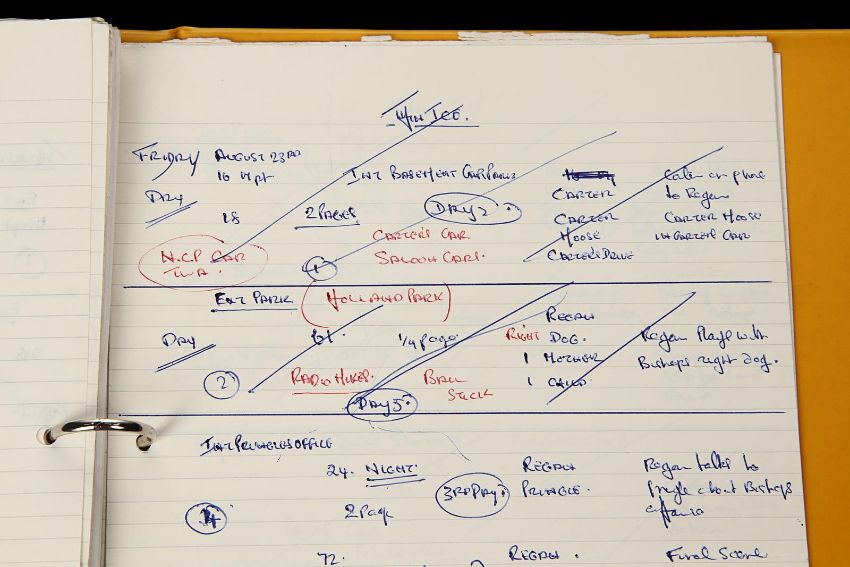 FRIDAY AUGUST 23RD
DAY
18
INT BASEMENT CAR PARK
2 PAGES
DAY 2
CARTER
CARTER
MOOSE
CARTER'S DRIVE
Carter on phone
to Regan
CARTER MOOSE
IN CARTER CAR
N.C.P CAR
CARTER'S CAR
SALOON CARS.
1
EXT PARK (HOLLAND PARK)
DAY
61.
1/4 page.
2
RADIO MIKES.
BALL
STICK
DAY 5
REGAN
RIGHT DOG.
1 MOTHER
1 CHILD
Regan Plays with
Bishops right dog.
INT PRINGLES OFFICE
24. NIGHT.
2 Page
3RD DAY
REGAN
PRINGLE.
Regan talks to
Pringle about Bishops
72.
REGAN.
Final Scene